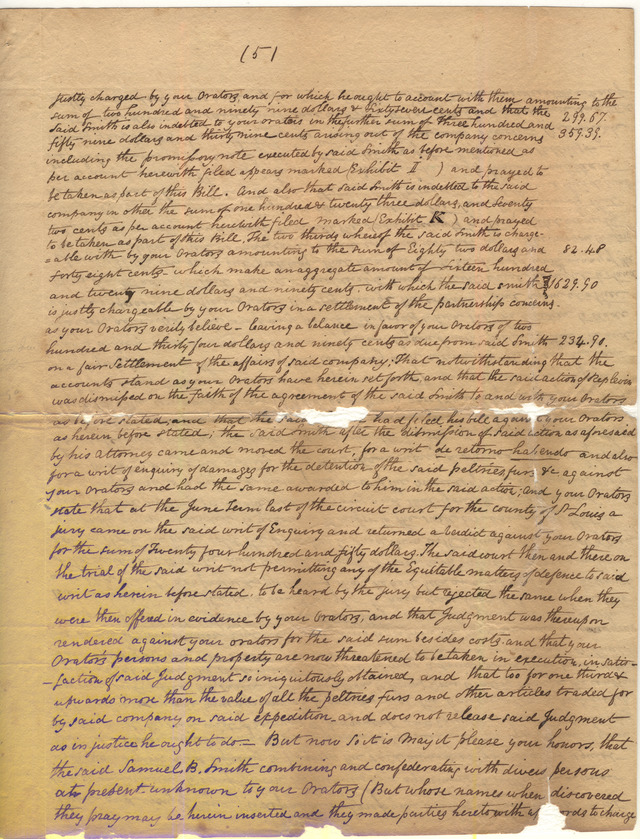 (5)
justly charged by your Orators, and for which he ought to account with them amounting to the
sum of two hundred and ninety nine dollars & Sixty seven cents and that the 299.67.
said Smith is also indebted to your orators in the further sum of three hundred and
fifty nine dollars and thirty nine cents arising out of the company concerns 359.39.
including the promissory note executed by said Smith as before mentioned as
per account herewith filed appears marked Exhibit I ) and prayed to
be taken as part of this Bill. And also that said Smith is indebted to the said
company in other the sum of one hundred & twenty three dollars, and Seventy
two cents as per account herewith filed marked Exhibit K ) and prayed
to be taken as part of this Bill, The two thirds whereof the said Smith is charge-
able with by your Orators amounting to the sum of Eighty two dollars and 82.48
forty eight cents - which make an aggregate amount of Sixteen hundred
and twenty nine dollars and ninety cents. with which the said Smith $1629.90
is justly chargeable by your Orators in a settlement of the partnership concerns.
as your Orators verily believe - leaving a balance in favor of your Orators of two
hundred and thirty four dollars and ninety cents as due from said Smith 234.90.
on a fair Settlement of the affairs of said company; That notwithstanding that the
accounts stand as your Orators have herein set forth, and that the said action of Replevin
was dismissed on the faith of the agreement of the said Smith to and with your Orators
as before stated, and that the had filed his bill against your Orators
as herein before stated; the said Smith after the dismission of said action as aforesaid
by his attorney came and moved the court, for a writ de retorno habendo and also
for a writ of enquiry of damages for the detention of the said peltries, furs, &c against
your Orators and had the same awarded to him in the said action; and your Orators
state that at the June term last of the circuit court for the county of St Louis a
jury came on the said writ of Enquiry and returned a verdict against your Orators
for the sum of Twenty four hundred and fifty dollars. The said court then and there on
the trial of the said writ not permitting any of the Equitable matters of defence to said
writ as herein before stated to be heard by the jury but rejected the same when they
were then offered in evidence by your Orators, and that Judgment was thereupon
rendered against your orators for the said sum besides costs and that your
Orators persons and property are now threatened to be taken in execution, in satis-
-faction of said Judgment so iniquitously obtained, and that too for one third &
upwards more than the value of all the peltries furs and other articles traded for
by said company on said expedition, and does not release said Judgment
as in justice he ought to do - But now so it is May it please your honors, that
the said Samuel B. Smith combining and confederating with divers persons
at present unknown to your Orators (But whose names when discovered
they pray may be herein inserted and they made parties hereto with words to charge